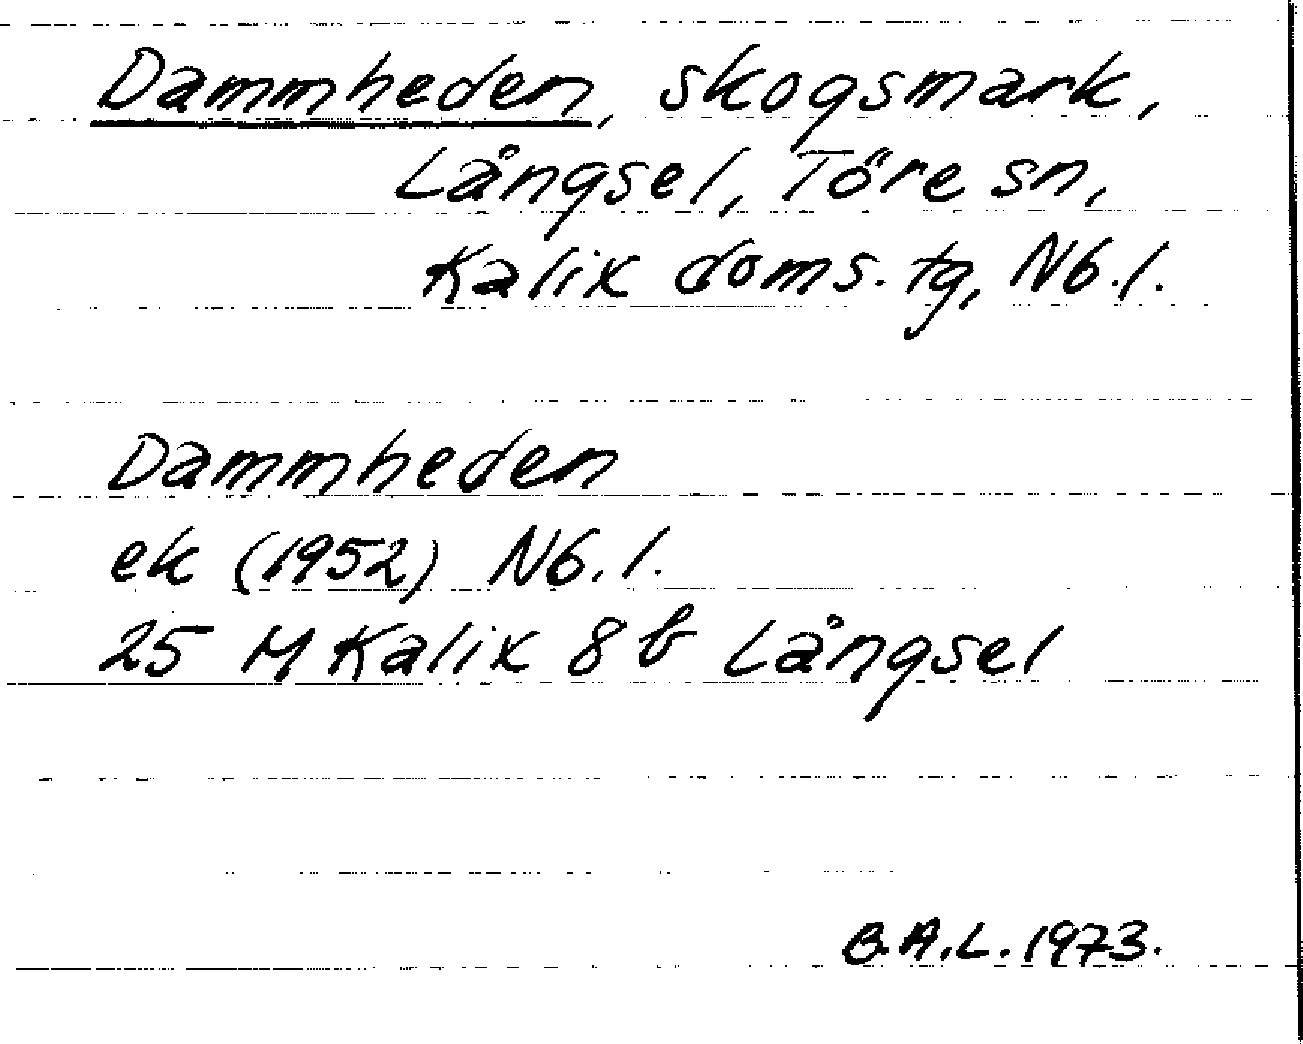 Dammheden, skogsmark,
Långsel, Töre sn,
Kalix doms. tg, Nb. l.
Dammheden
ek (1952) Nb. l.
25 M Kalix 8 b Långsel
B.A.L. 1973.